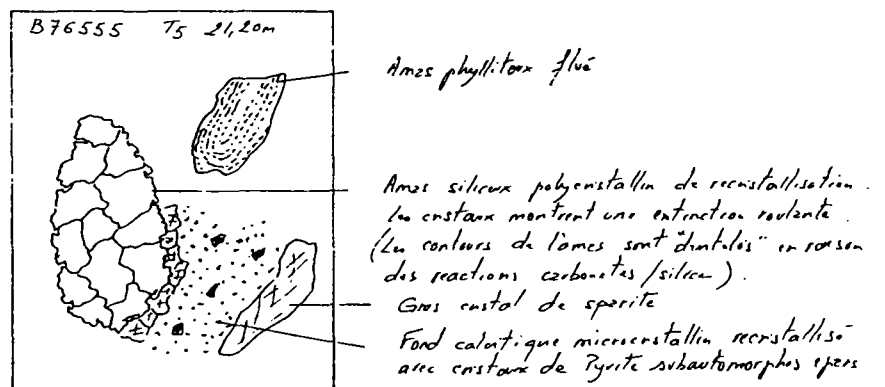 B76555 T5 21,20m
Amas phylliteux flué
Amas siliceux polycristallin de recristallisation.
les cristaux montrent une extinction roulante.
(Les contours de l'amas sont "dentelés" en raison
des reactions carbonates/silice).
Gros cristal de sparite
Fond calcitique microcristallin recristallisé
avec cristaux de Pyrite subautomorphes epars